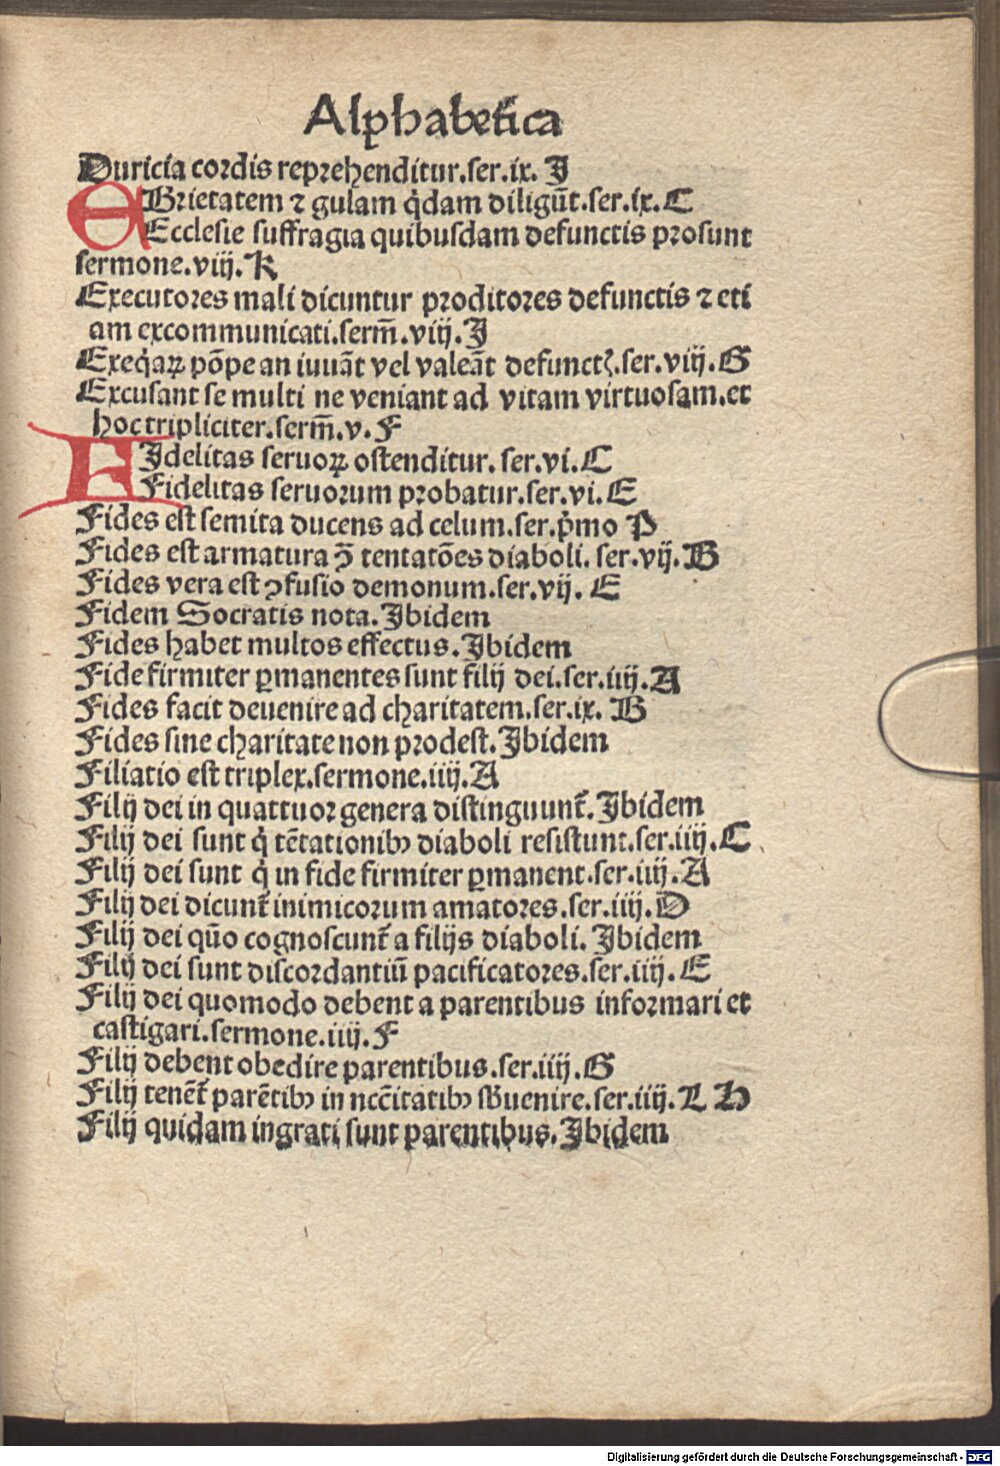 Alphabetica
Duricia cordis reprehenditur.ser.ix. J
EBrietatem ⁊ gulam q̇dam diligūt.ser.ix.C
Ecclesie suffragia quibusdam defunctis prosunt
sermone.viij.K
Executores mali dicuntur proditores defunctis ⁊ eti
am excommunicati.serm̄.viij.J
Exeq̇aꝝ pōpe an iuuāt vel valeāt defunctꝭ.ser.viij.G
Excusant se multi ne veniant ad vitam virtuosam.et
hoc tripliciter.serm̄.v.F
FIdelitas seruoꝝ ostenditur. ser.vi.C
Fidelitas seruorum probatur.ser.vi.E
Fides est semita ducens ad celum.ser.ṗmo P
Fides est armatura ↄ̄ tentatōes diaboli. ser.vij.B
Fides vera est ↄfusio demonum.ser.vij. E
Fidem Socratis nota.Jbidem
Fides habet multos effectus.Jbidem
Fide firmiter ꝑmanentes sunt filij dei.ser.iiij.A
Fides facit deuenire ad charitatem.ser.ix. B
Fides sine charitate non prodest.Jbidem
Filiatio est triplex.sermone.iiij.A
Filij dei in quattuor genera distinguunt᷑.Jbidem
Filij dei sunt q̇ tētationibꝰ diaboli resistunt.ser.iiij.C
Filij dei sunt q̇ in fide firmiter ꝑmanent.ser.iiij.A
Filij dei dicunt᷑ inimicorum amatores.ser.iiij.D
Filij dei qūo cognoscunt᷑ a filijs diaboli. Jbidem
Filij dei sunt discordantiū pacificatores.ser.iiij.E
Filij dei quomodo debent a parentibus informari et
castigari.sermone.iiij.F
Filij debent obedire parentibus.ser.iiij.G
Filij tenēt᷑ parētibꝰ in nccītatibꝰ sƀuenire.ser.iiij.L H
Filij quidam ingrati sunt parentibus.Jbidem
Digitalisierung gefördert durch die Deutsche Forschungsgemeinschaft - DFG